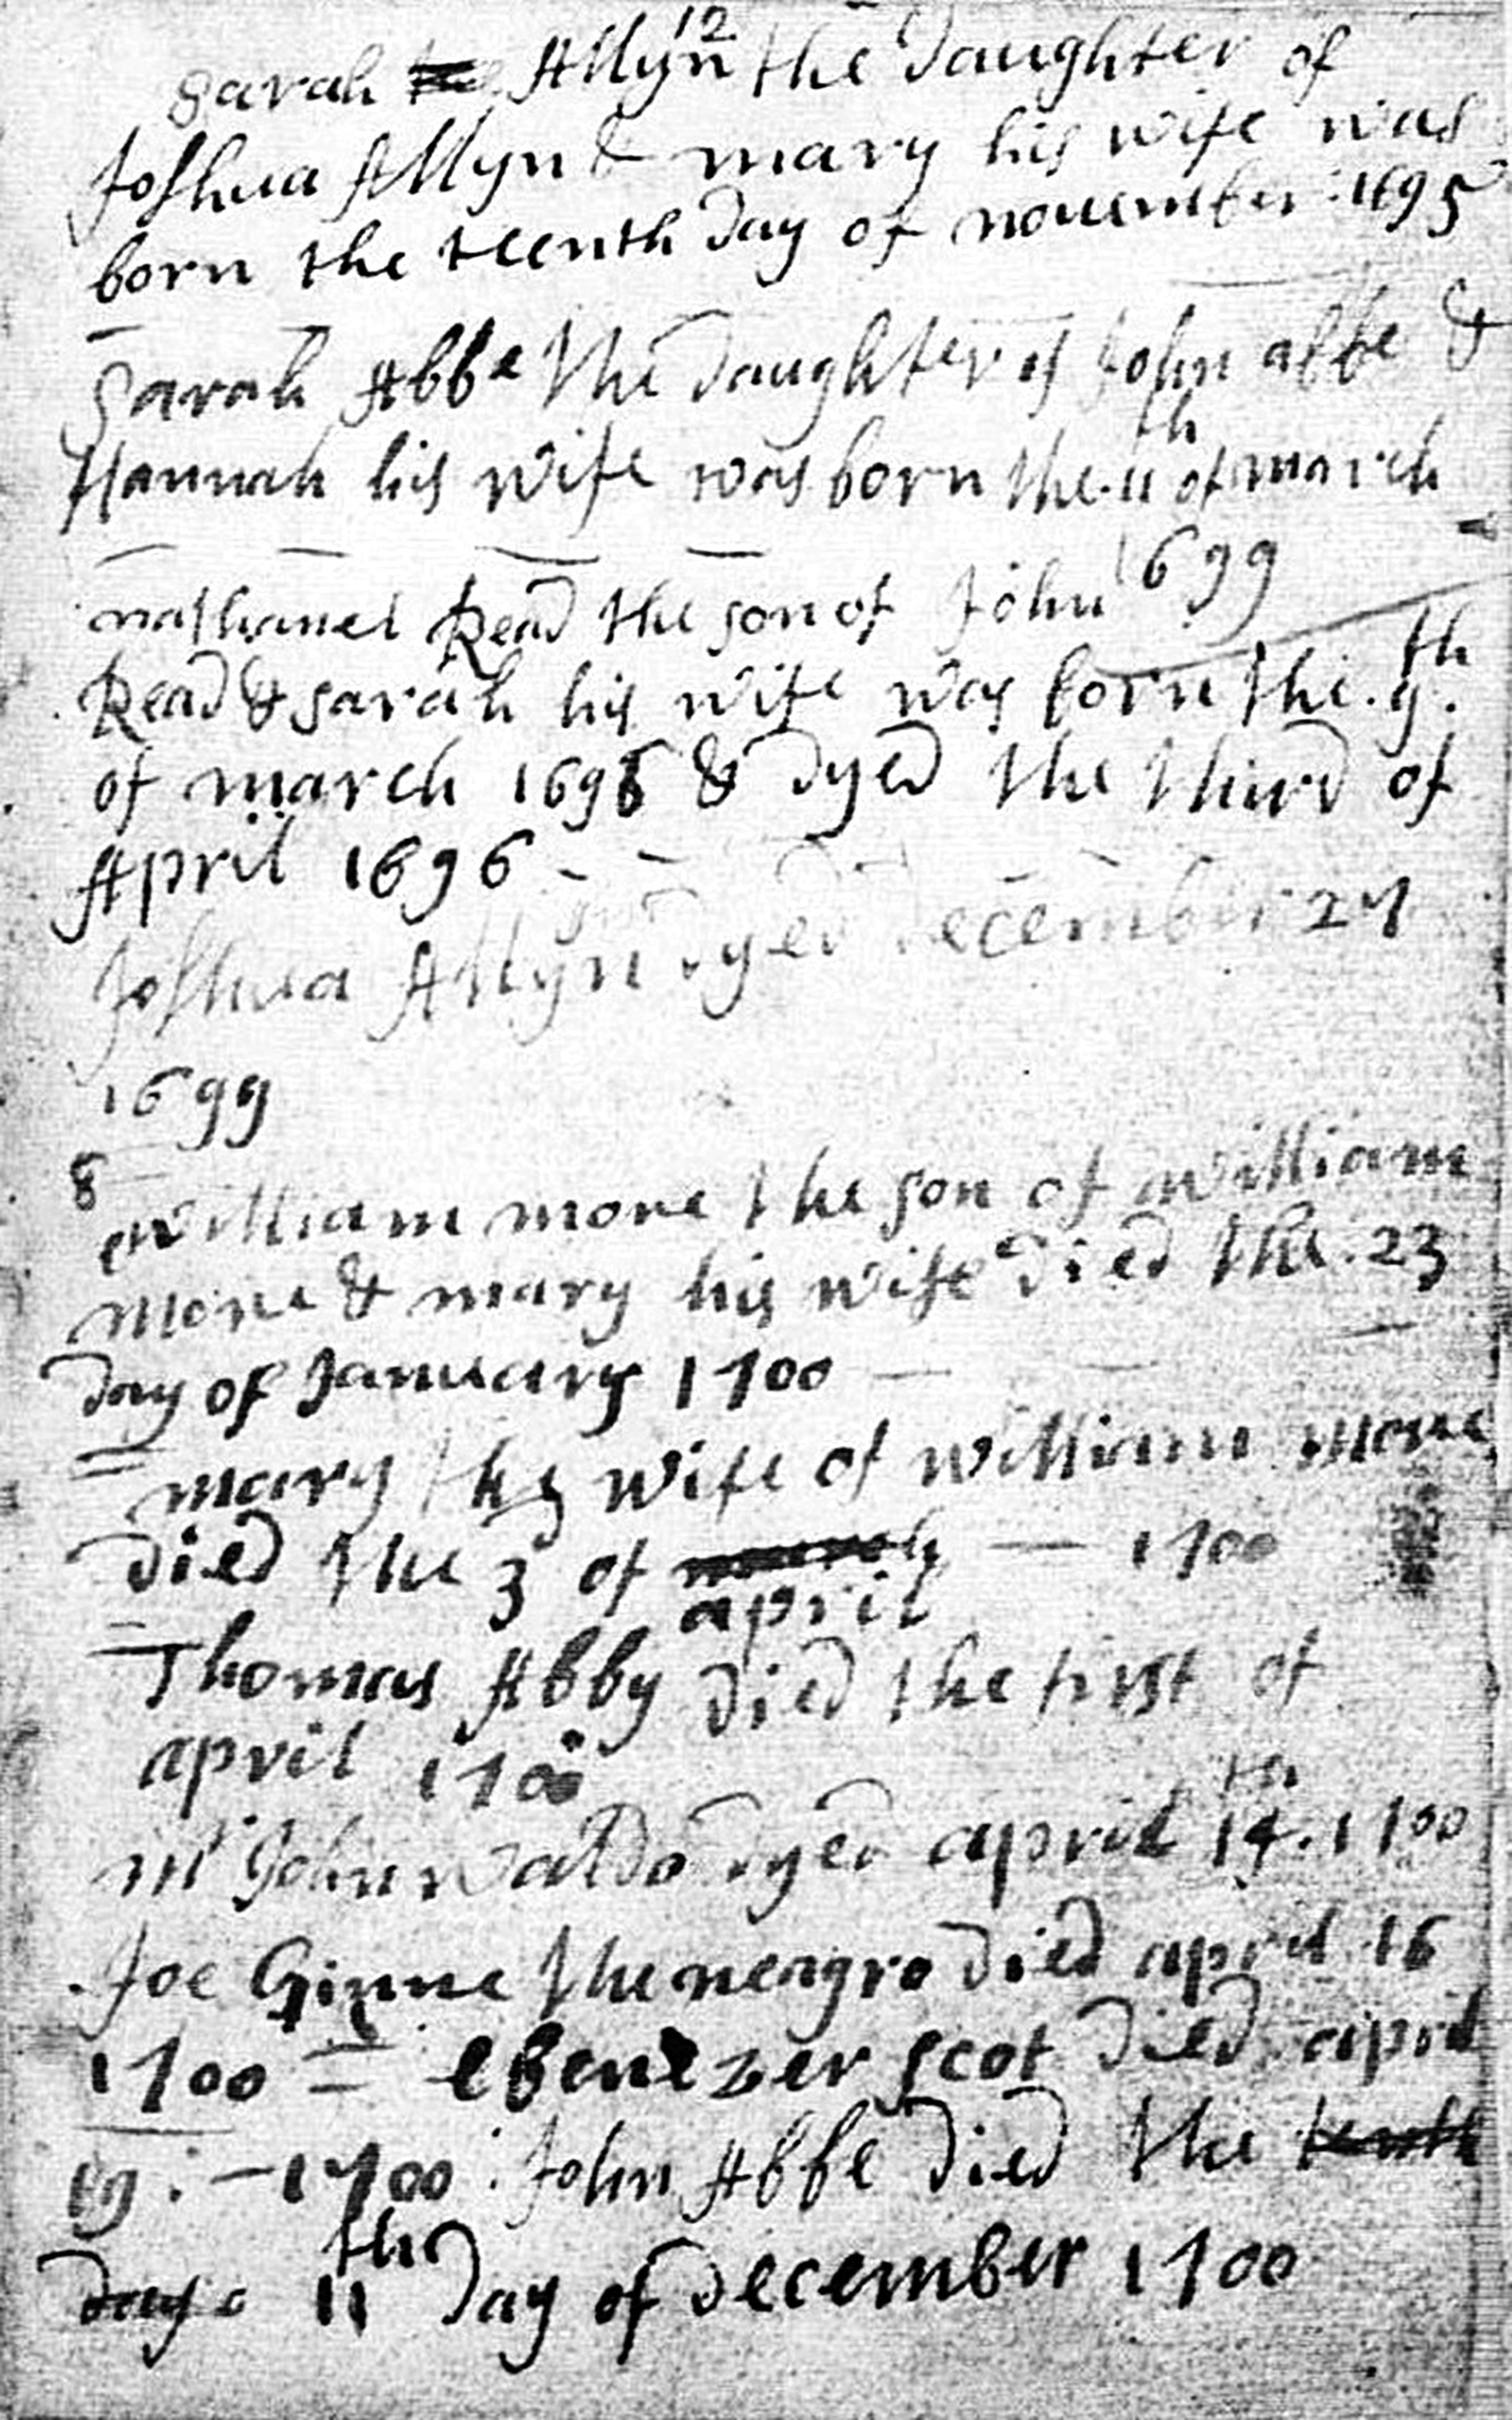 12
Sarah Allyn the Daughter of
Joshua Allyn & mary his wife was
born the teenth Day of nouember 1695
Sarah Abbe the Daughter of John abbe &
Hannah his wife was born the 11th of march
1699
nathaniel Read the son of John
Read & sarah his wife was born the 9th
of march 1696 & Dyed the third of
April 1696
Joshua Allyn Dyed December 27
1699
8
william more the son of william
more & mary his wife Died the 23
Day of January 1700
mary the wife of william more
Died the 3 of march 1700
april
Thomas Abby Died the first of
april 1700
mr John waldo Dyed april 14th 1700
Joe Ginne the neagro Died april 16
1700 = ebenezer scot Died april
19 : - 1700 : John Abbe Died the tenth
Day o 11th Day of December 1700